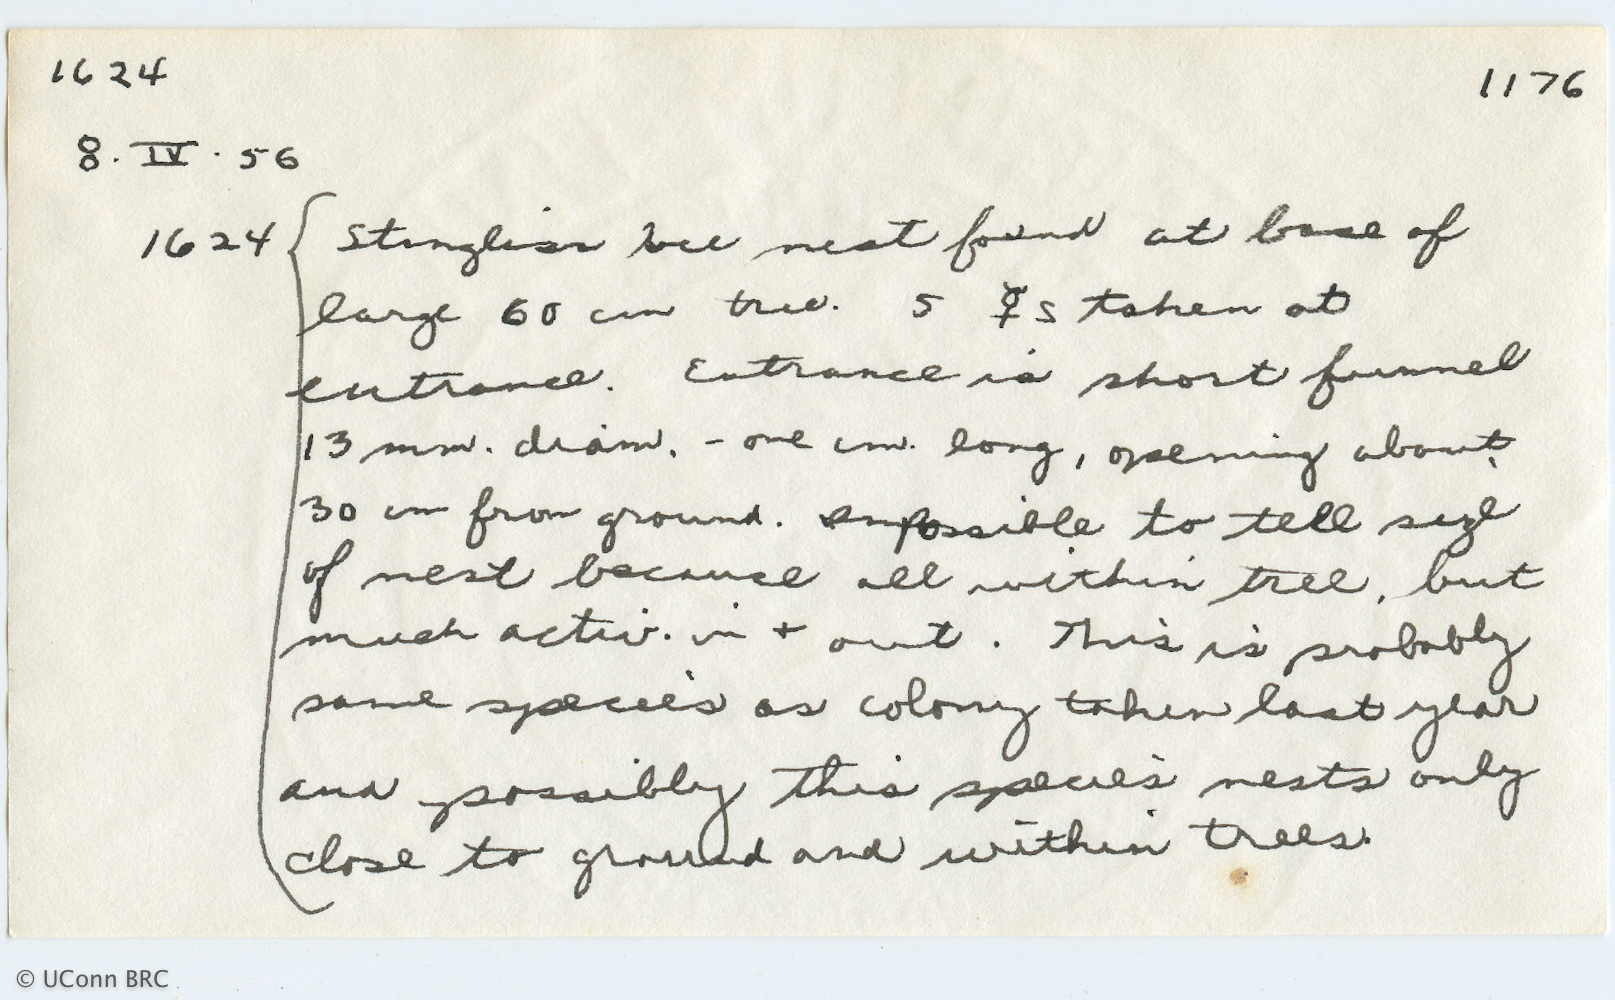 1624
1176
8. IV. 56
1624 Stingless bee nest found at base of
large 60 cm tree. 5 ☿s taken at
entrance. Entrance is short funnel
13 mm. diam. - one cm. long, opening about
30 cm from ground. Impossible to tell size
of nest because all within tree, but
much activ. in + out. This is probably
same species as colony taken last year
and possibly this species nests only
close to ground and within trees.
© UConn BRC